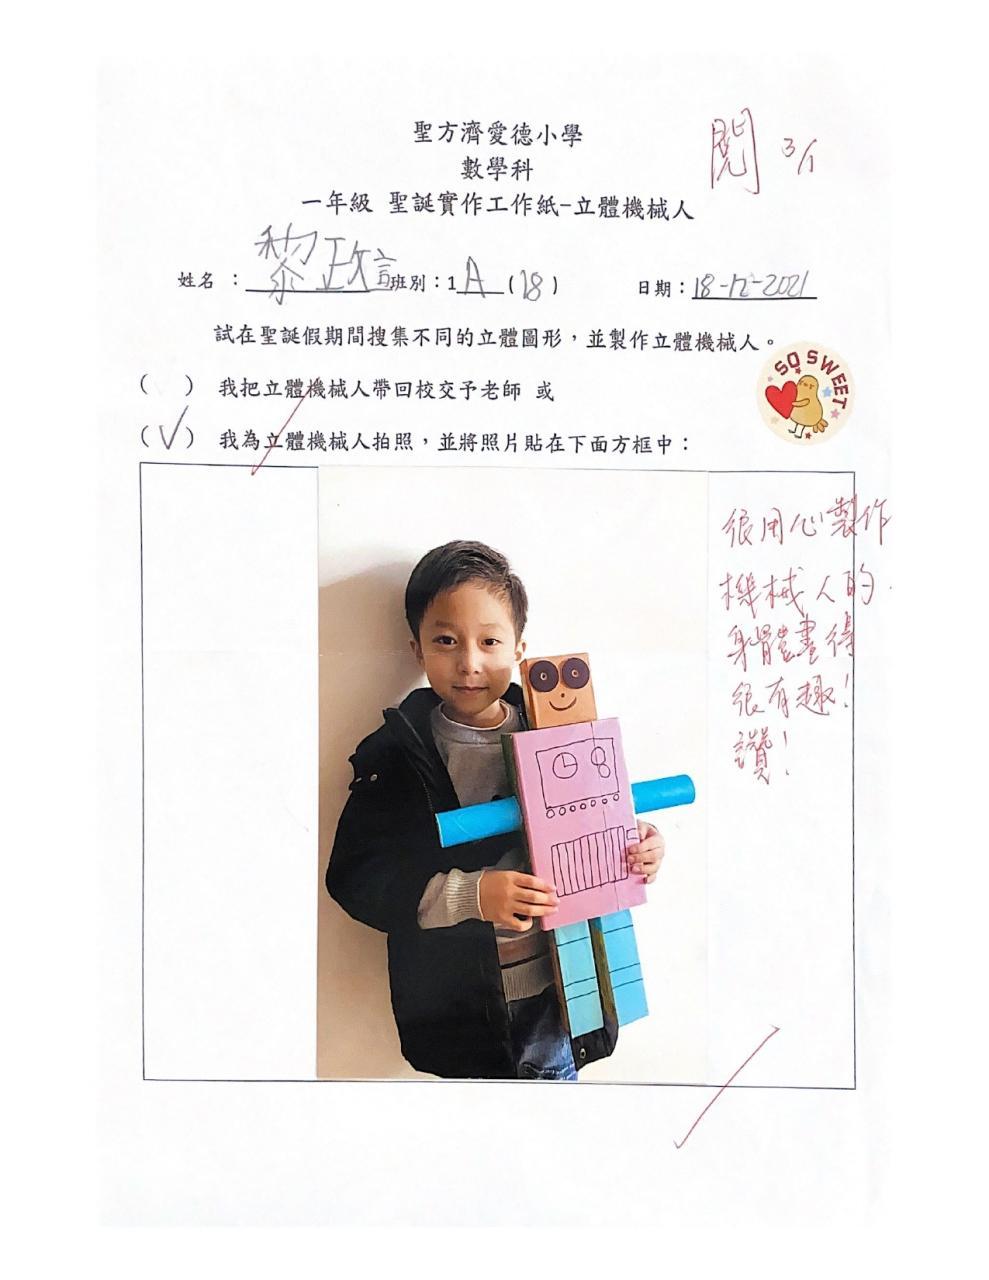 聖方濟愛德小學
數學科
一年級 聖誕實作工作紙-立體機械人
閱 3/1
姓名：黎政言 班別：1A(18) 日期：18-12-2021
試在聖誕假期間搜集不同的立體圖形，並製作立體機械人。
( ) 我把立體機械人帶回校交予老師 或
(✓) 我為立體機械人拍照，並將照片貼在下面方框中：
SO SWEET
很用心製作
機械人的
身體畫得
很有趣！
讚！